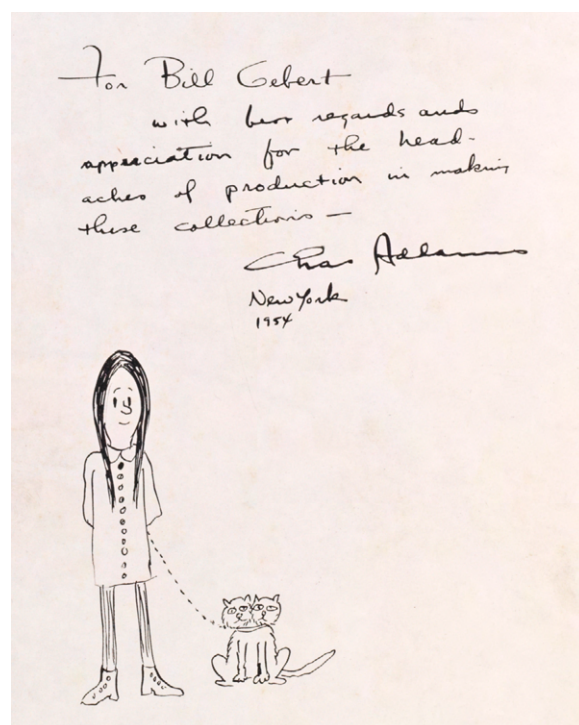 For Bill Gebert
with best regards and
appreciation for the head-
aches of production in making
these collections —
Chas Addams
New York
1954